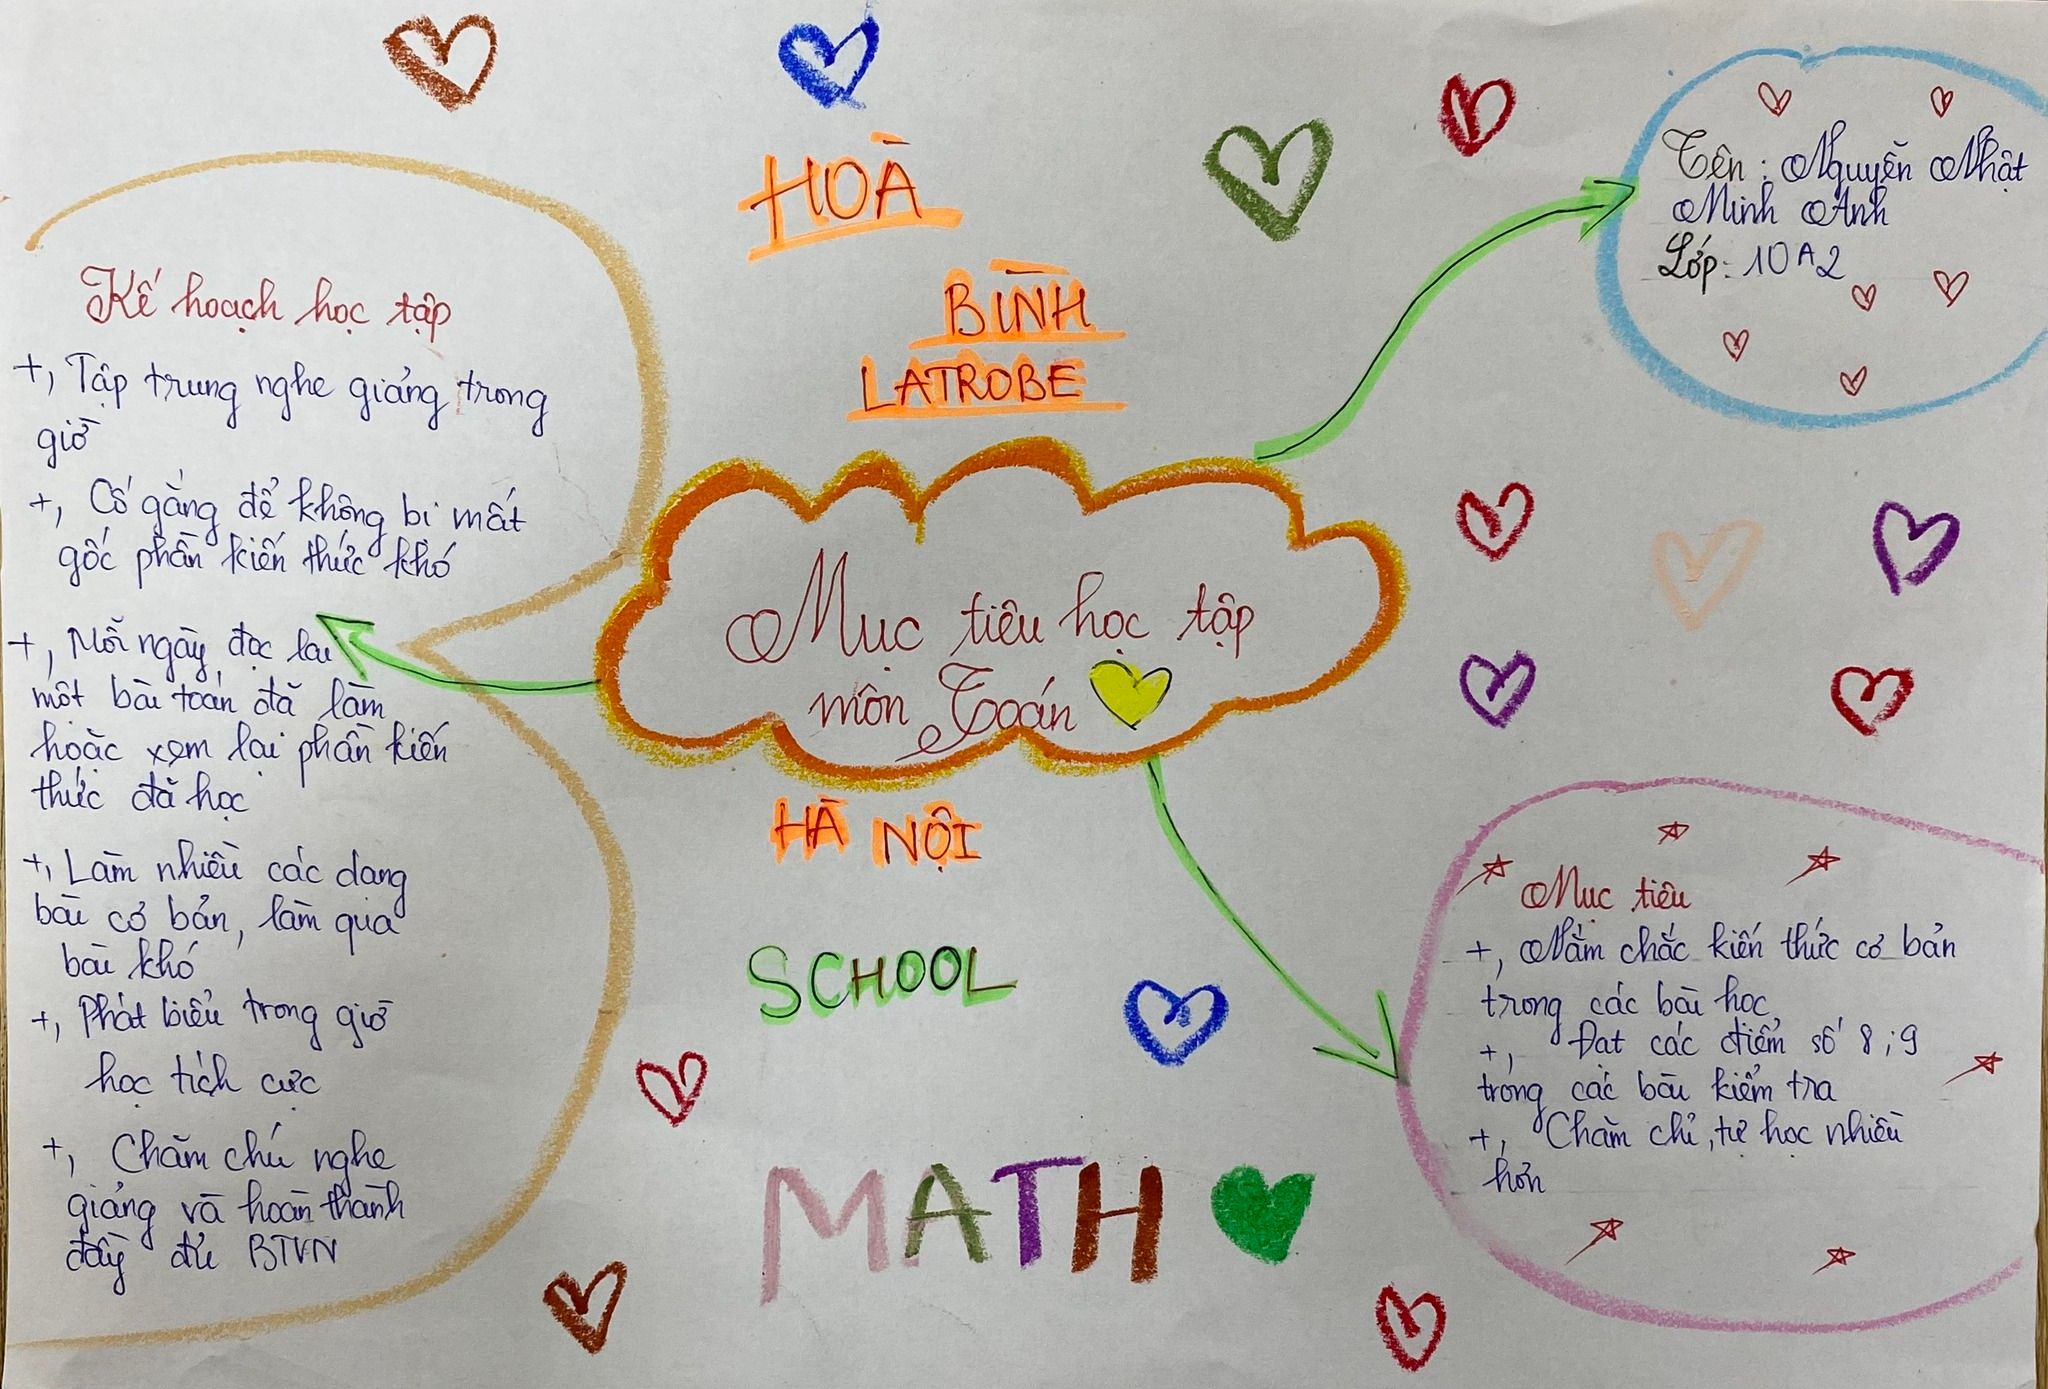 HOÀ
BÌNH
LATROBE
Tên : Nguyễn Nhật
Minh Anh
Lớp: 10A2
Kế hoạch học tập
+, Tập trung nghe giảng trong
giờ
+, Cố gắng để không bị mất
gốc phần kiến thức khó
+, Mỗi ngày đọc lại
một bài toán đã làm
hoặc xem lại phần kiến
thức đã học
+, Làm nhiều các dạng
bài cơ bản, làm qua
bài khó
+, Phát biểu trong giờ
học tích cực
+, Chăm chú nghe
giảng và hoàn thành
đầy đủ BTVN
Mục tiêu học tập
môn Toán
HÀ NỘI
SCHOOL
MATH
Mục tiêu
+, Nắm chắc kiến thức cơ bản
trong các bài học
+, Đạt các điểm số 8 ; 9
trong các bài kiểm tra
+, Chăm chỉ, tự học nhiều
hơn